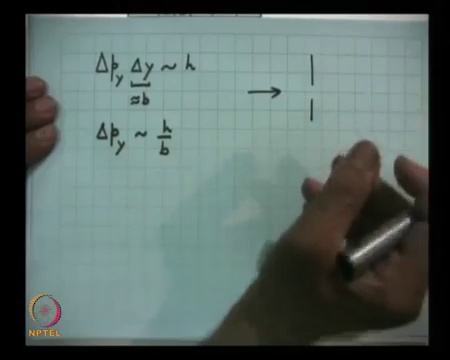 Δp_y Δy ~ h
≈b
Δp_y ~ h/b
NPTEL